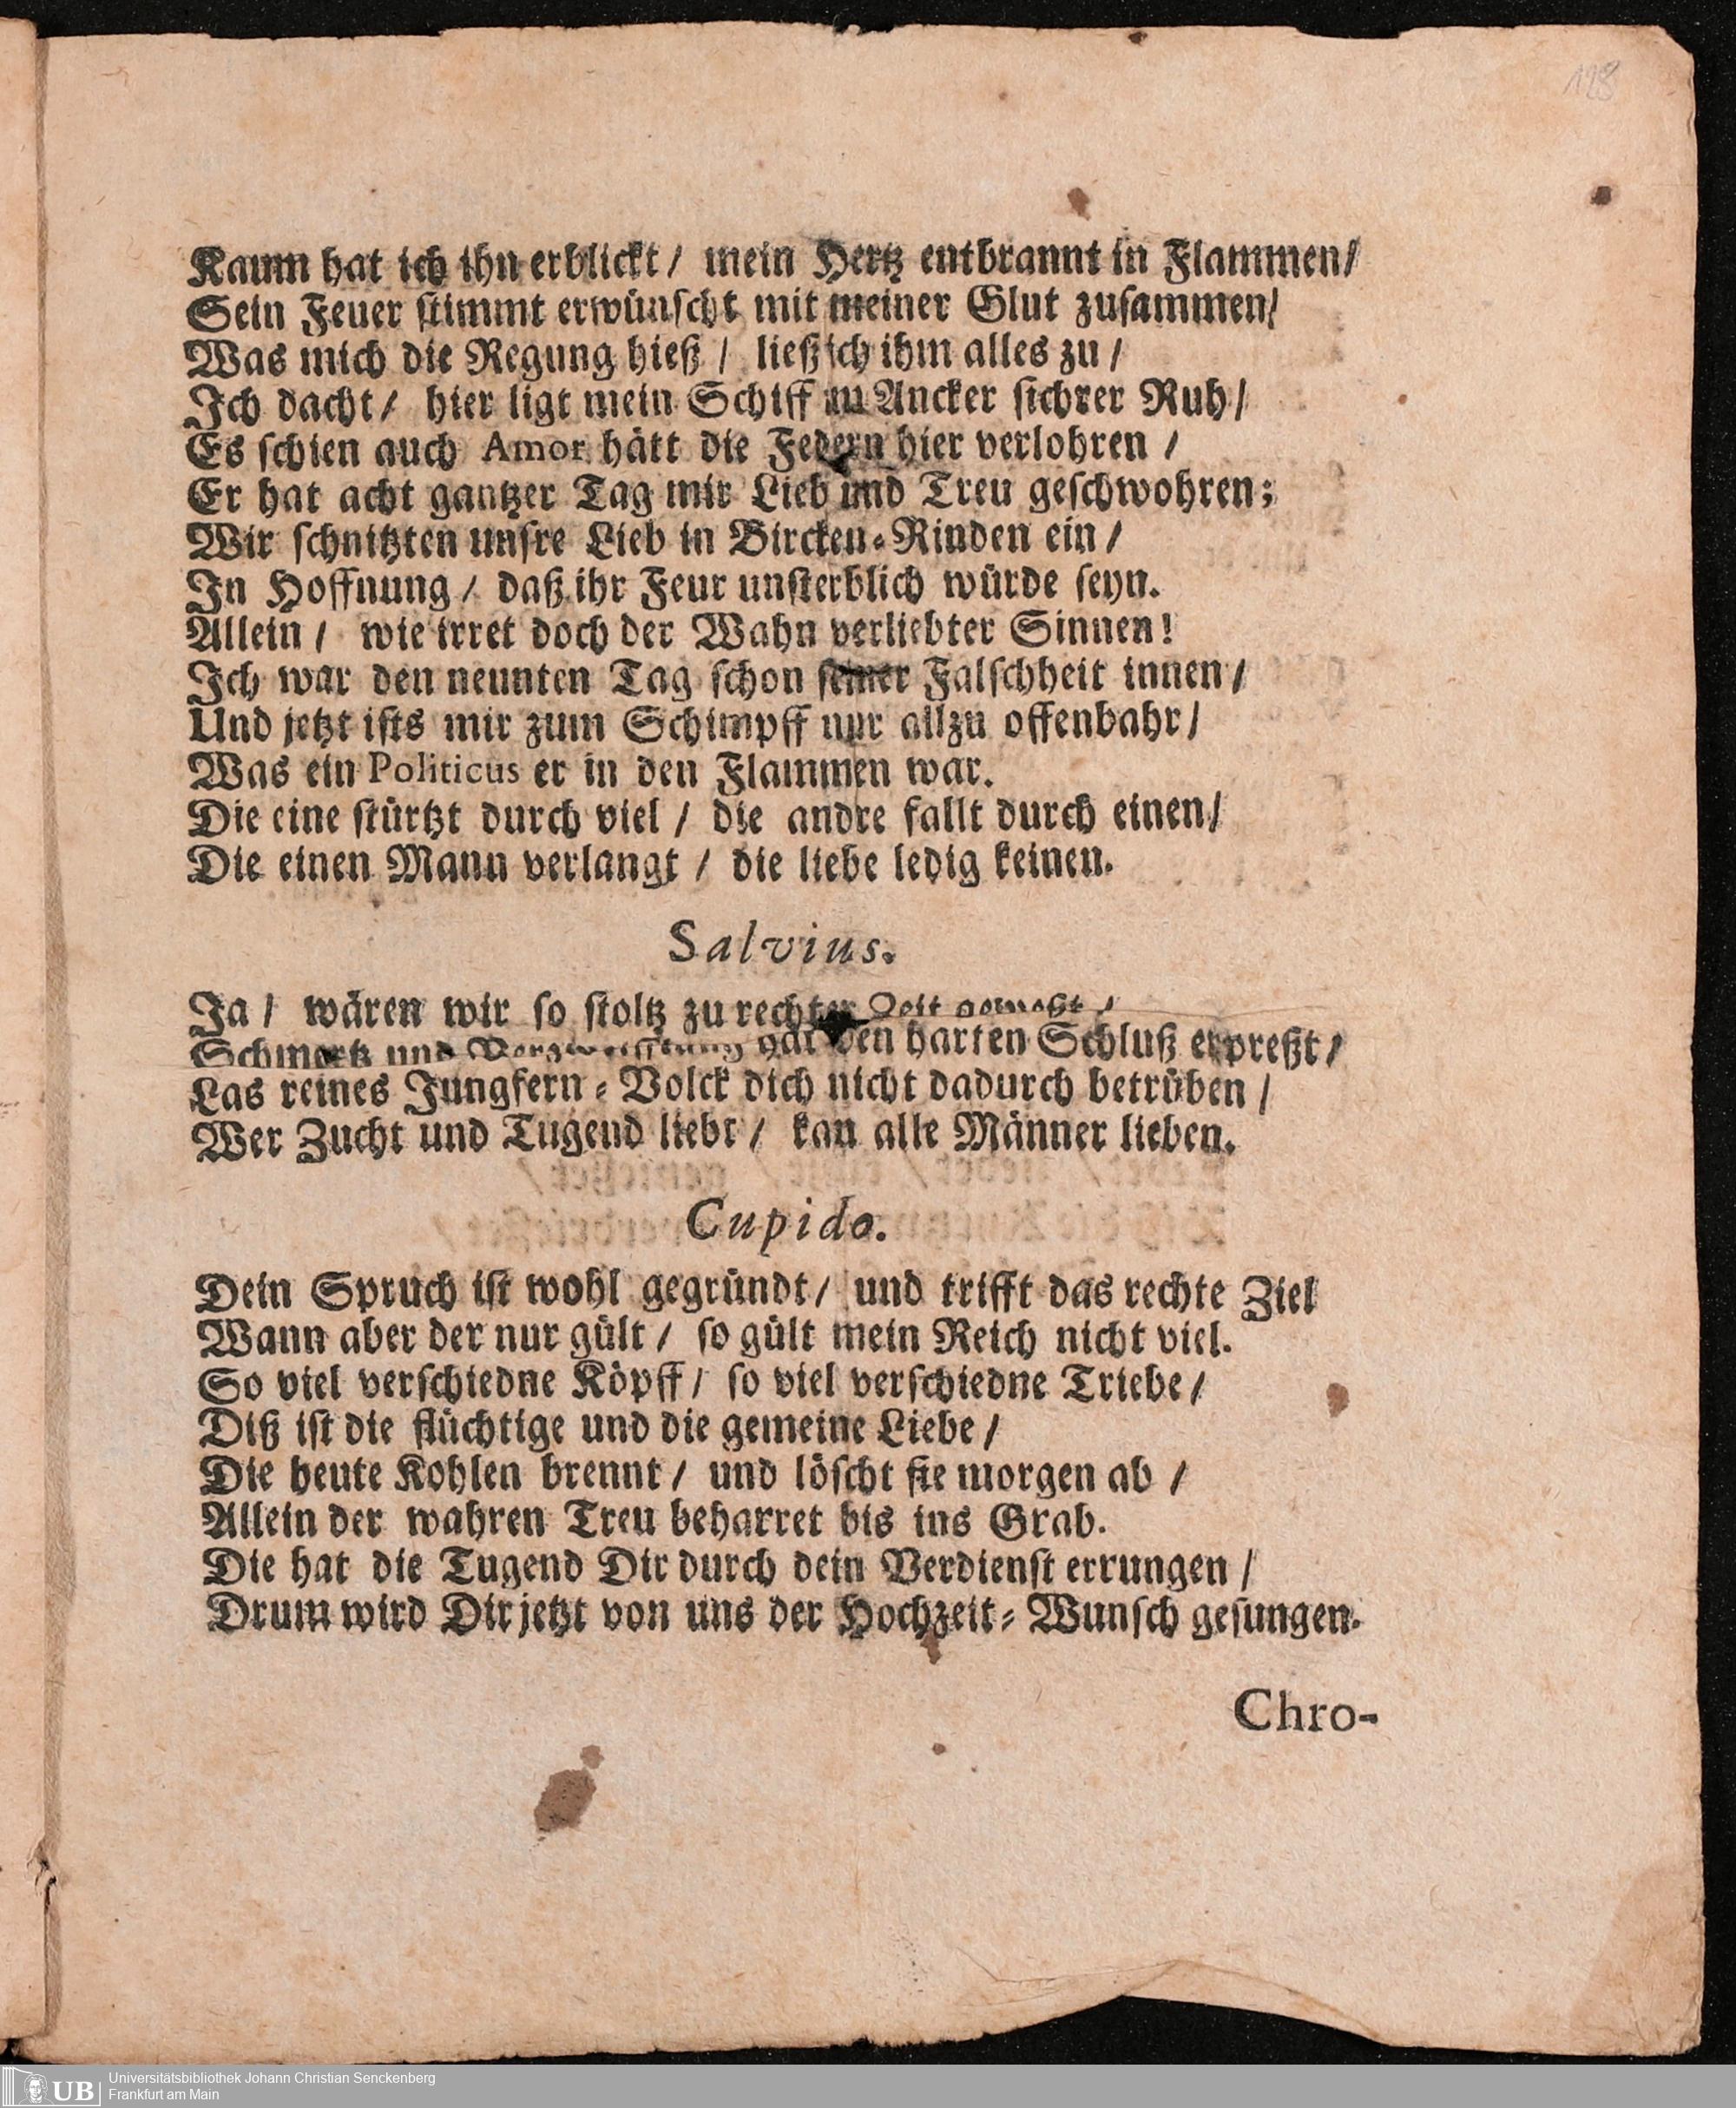 128
Kaum hat ich ihn erblickt / mein Hertz entbrannt in Flammen /
Sein Feuer stimmt erwünscht mit meiner Glut zusammen /
Was mich die Regung hieß / ließ ich ihm alles zu /
Ich dacht / hier ligt mein Schiff an Ancker sichrer Ruh /
Es schien auch Amor hätt die Federn hier verlohren /
Er hat acht gantzer Tag mir Lieb und Treu geschwohren;
Wir schnitzten unsre Lieb in Bircken-Rinden ein /
In Hoffnung / daß ihr Feur unsterblich würde seyn.
Allein / wie irret doch der Wahn verliebter Sinnen!
Ich war den neunten Tag schon seiner Falschheit innen /
Und jetzt ists mir zum Schimpff nur allzu offenbahr /
Was ein Politicus er in den Flammen war.
Die eine stürtzt durch viel / die andre fallt durch einen /
Die einen Mann verlangt / die liebe ledig keinen.
Salvius.
Ja / wären wir so stoltz zu rechter Zeit gewest /
Schmertz und Verzweifflung hat den harten Schluß erpreßt /
Las reines Jungfern-Volck dich nicht dadurch betrüben /
Wer Zucht und Tugend liebt / kan alle Männer lieben.
Cupido.
Dein Spruch ist wohl gegründt / und trifft das rechte Ziel
Wann aber der nur gült / so gült mein Reich nicht viel.
So viel verschiedne Köpff / so viel verschiedne Triebe /
Diß ist die flüchtige und die gemeine Liebe /
Die heute Kohlen brennt / und löscht sie morgen ab /
Allein der wahren Treu beharret bis ins Grab.
Die hat die Tugend Dir durch dein Verdienst errungen /
Drum wird Dir jetzt von uns der Hochzeit-Wunsch gesungen.
Chro-
UB
Universitätsbibliothek Johann Christian Senckenberg
Frankfurt am Main